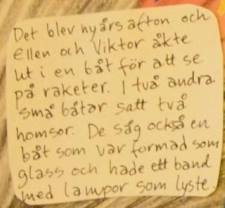 Det blev nyårsafton och
Ellen och Viktor åkte
ut i en båt för att se
på raketer. I två andra
små båtar satt två
homsor. De såg också en
båt som var formad som
glass och hade ett band
med lampor som lyste